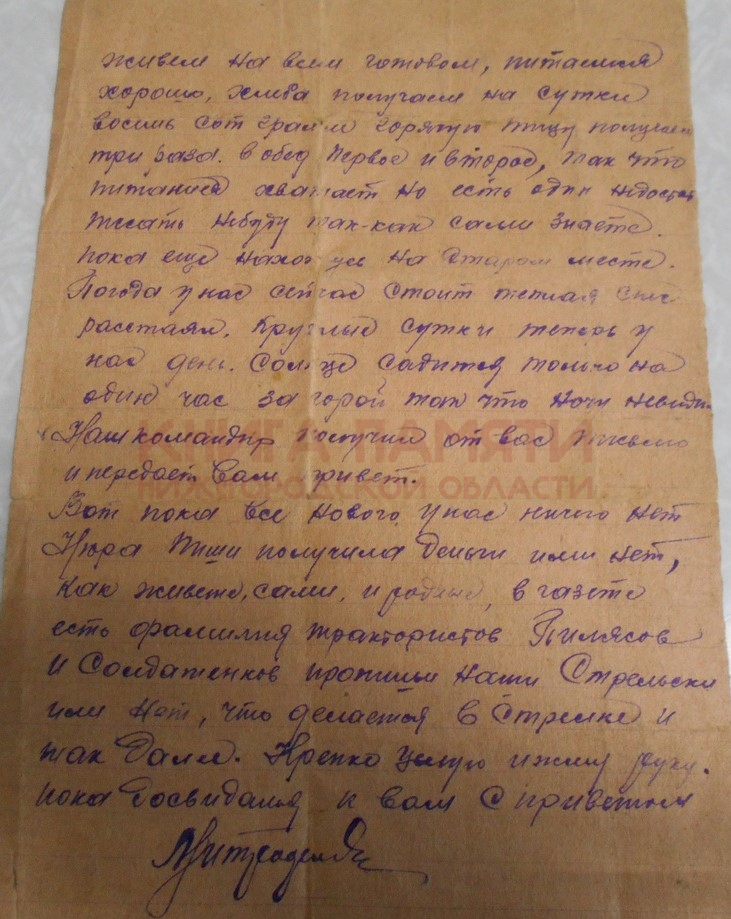 живем на всем готовом, питаемся
хорошо, хлеба получаем на сутки
восемь сот грамм горячую пищу получаем
три раза. в обед первое и второе, так что
питания хватает но есть один недостат
писать небуду так-как сами знаете.
пока еще нахожусь на старом месте.
Погода у нас сейчас стоит теплая снег
растаял. Круглые сутки теперь у
нас день. Солнце садится только на
один час за горой так что ночи невидим
Наш командир получил от вас письмо
и передает Вам привет.
КНИГА ПАМЯТИ
НИЖЕГОРОДСКОЙ ОБЛАСТИ
Вот пока все нового у нас ничего нет
Нюра Пиши получила деньги или нет,
как живете, сами, и родные, в газете
есть фамилия трактористов Пилясов
и Солдатенков
наши Стрельски
или нет, что делается в Стрелке и
так дале. Крепко целую и жму руку.
пока досвиданья к вам с приветом